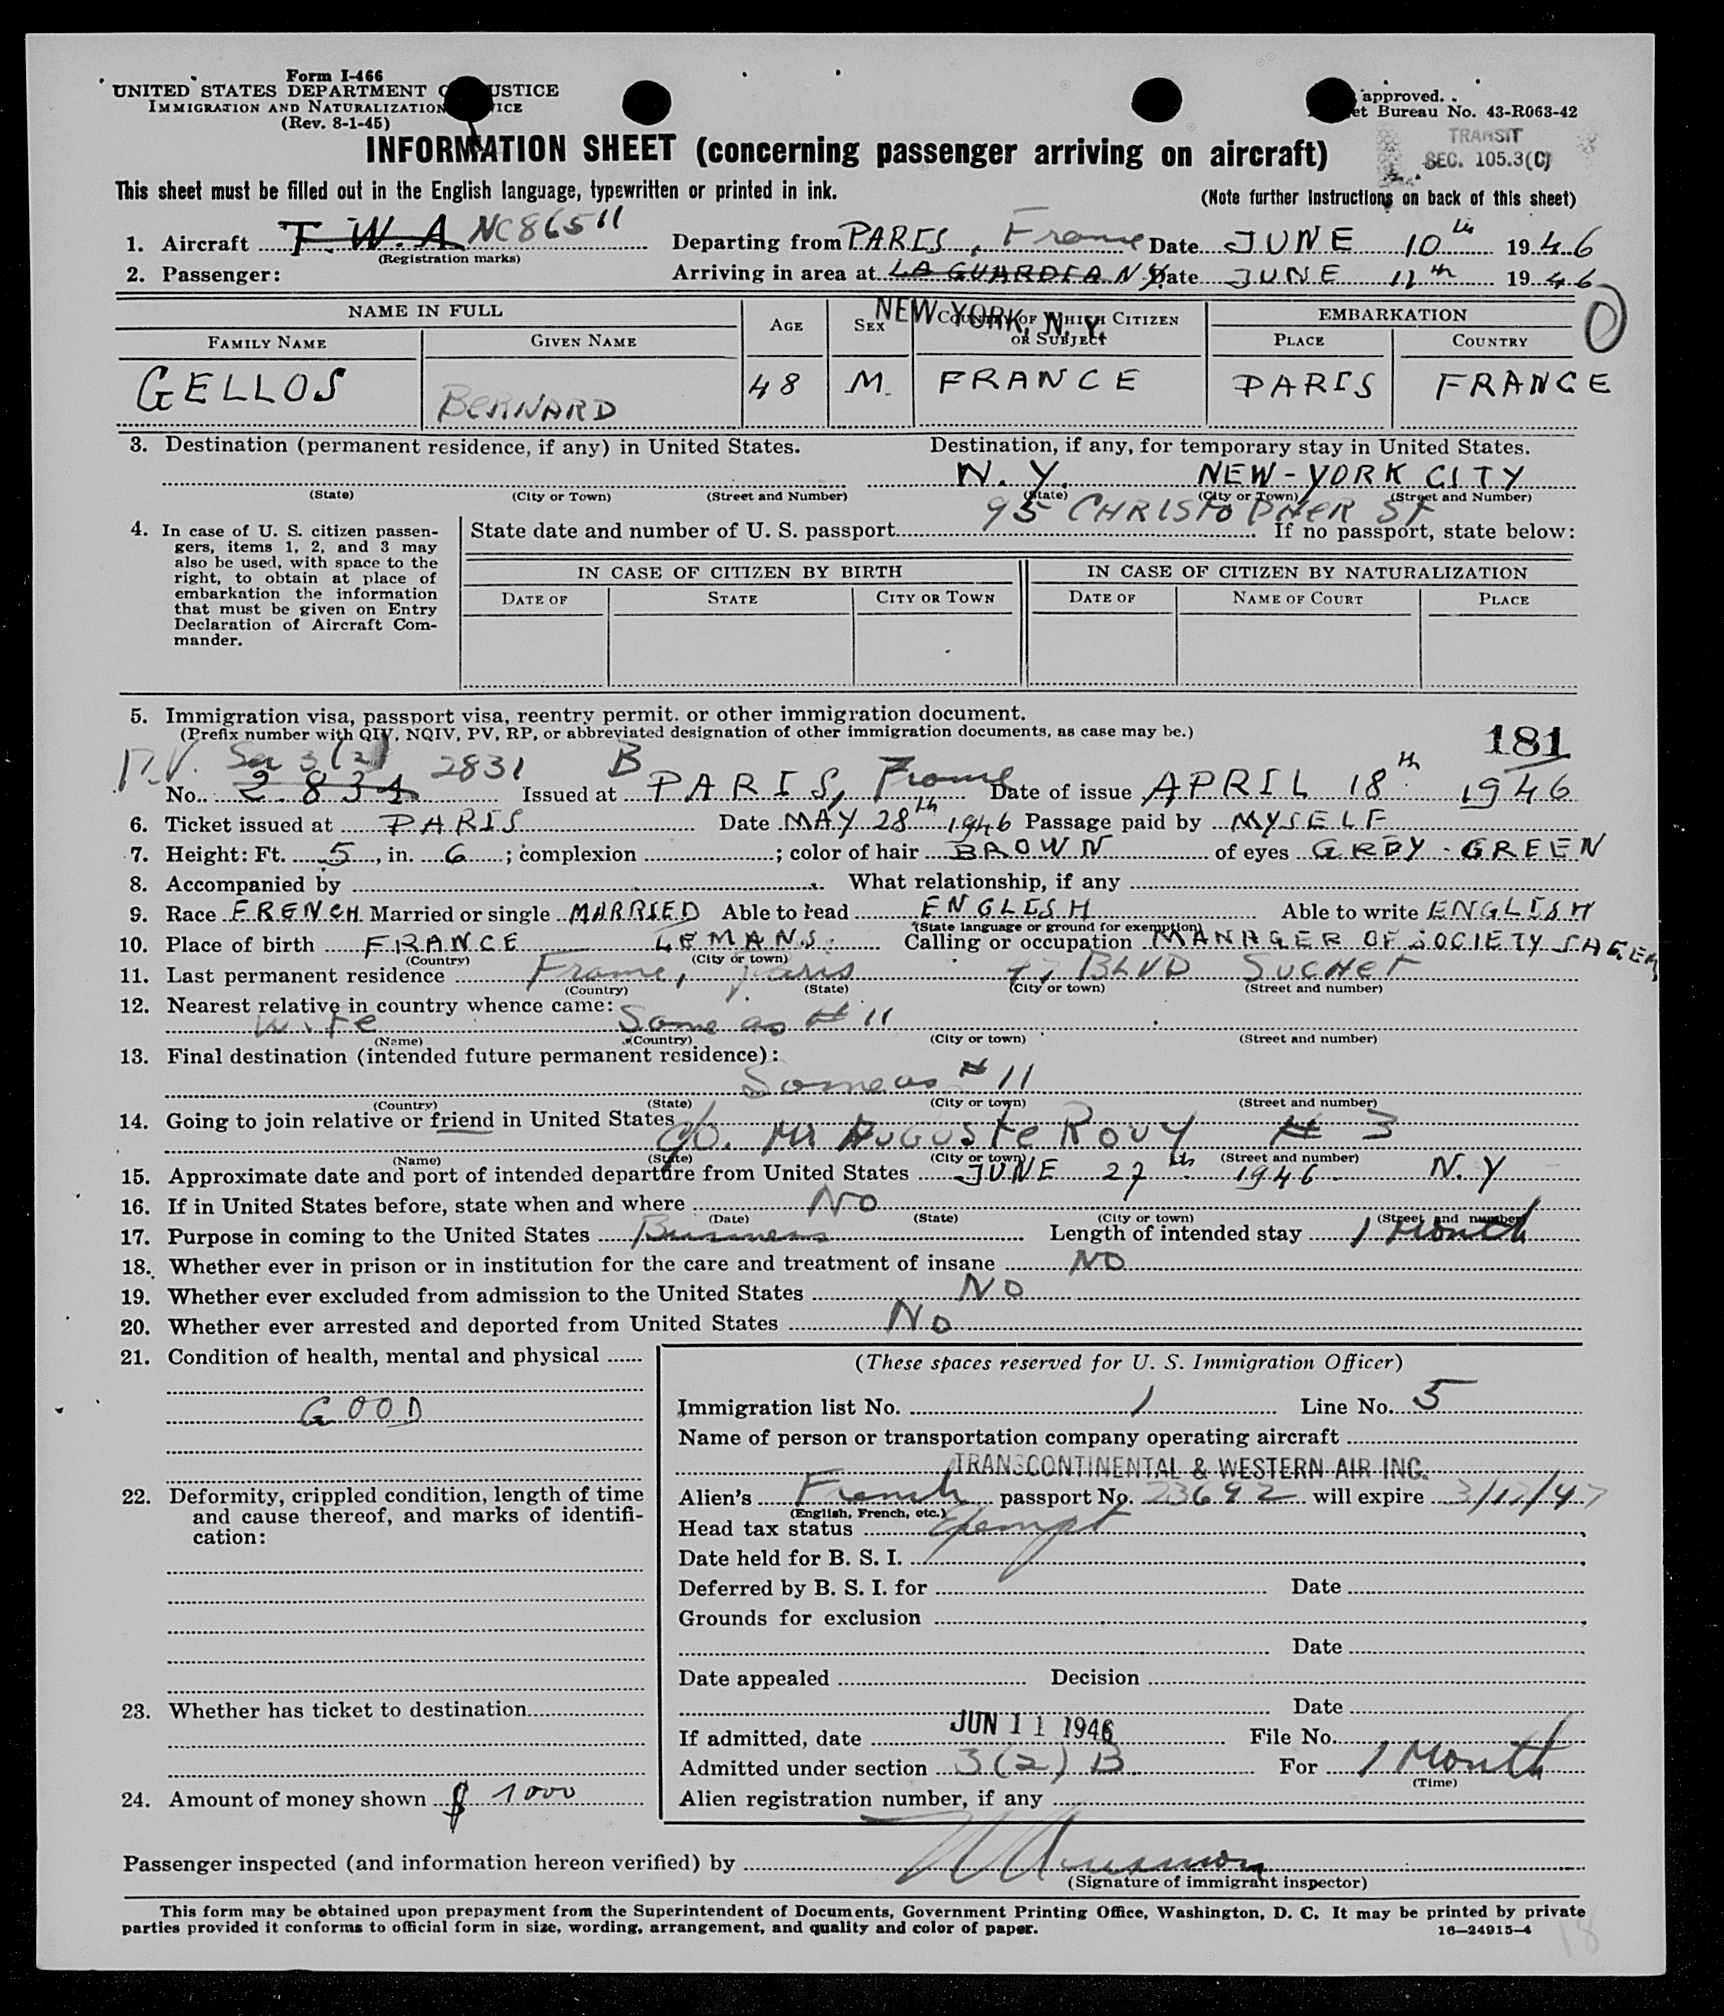 Form I-466
UNITED STATES DEPARTMENT OF JUSTICE
IMMIGRATION AND NATURALIZATION SERVICE
(Rev. 8-1-45)
approved.
et Bureau No. 43-R063-42
TRANSIT
SEC. 105.3(C)
INFORMATION SHEET (concerning passenger arriving on aircraft)
This sheet must be filled out in the English language, typewritten or printed in ink.
(Note further instructions on back of this sheet)
1. Aircraft T.W.A NC86511 Departing from PARIS, France Date JUNE 10th 1946
(Registration marks)
2. Passenger: Arriving in area at LA GUARDIA N.Y. Date JUNE 11th 1946
NEW YORK, N. Y.
NAME IN FULL AGE SEX COUNTRY OF WHICH CITIZEN OR SUBJECT EMBARKATION
FAMILY NAME GIVEN NAME PLACE COUNTRY
GELLOS BERNARD 48 M. FRANCE PARIS FRANCE
3. Destination (permanent residence, if any) in United States. Destination, if any, for temporary stay in United States.
N. Y. NEW-YORK CITY
(State) (City or Town) (Street and Number) (State) (City or Town) (Street and Number)
95 CHRISTOPHER ST
4. In case of U. S. citizen passen-
gers, items 1, 2, and 3 may
also be used, with space to the
right, to obtain at place of
embarkation the information
that must be given on Entry
Declaration of Aircraft Com-
mander.
State date and number of U. S. passport If no passport, state below:
IN CASE OF CITIZEN BY BIRTH IN CASE OF CITIZEN BY NATURALIZATION
DATE OF STATE CITY OR TOWN DATE OF NAME OF COURT PLACE
5. Immigration visa, passport visa, reentry permit, or other immigration document.
(Prefix number with QIV, NQIV, PV, RP, or abbreviated designation of other immigration documents, as case may be.)
181
P.V. Sec 3(2) 2831 B
No. 2831 Issued at PARIS, France Date of issue APRIL 18th 1946
6. Ticket issued at PARIS Date MAY 28th 1946 Passage paid by MYSELF
7. Height: Ft. 5, in. 6; complexion ; color of hair BROWN of eyes GREY-GREEN
8. Accompanied by What relationship, if any
9. Race FRENCH Married or single MARRIED Able to read ENGLISH Able to write ENGLISH
(State language or ground for exemption)
10. Place of birth FRANCE LE MANS. Calling or occupation MANAGER OF SOCIETY SAGEM
(Country) (City or town)
11. Last permanent residence France, Paris 47 BLVD SUCHET
(Country) (State) (City or town) (Street and number)
12. Nearest relative in country whence came:
Wife Same as # 11
(Name) (Country) (City or town) (Street and number)
13. Final destination (intended future permanent residence):
Same as # 11
(Country) (State) (City or town) (Street and number)
14. Going to join relative or friend in United States
c/o. Mr AUGUSTE ROUY # 3
(Name) (State) (City or town) (Street and number)
15. Approximate date and port of intended departure from United States JUNE 27th 1946 N.Y
16. If in United States before, state when and where NO
(Date) (State) (City or town) (Street and number)
17. Purpose in coming to the United States Business Length of intended stay 1 Month
18. Whether ever in prison or in institution for the care and treatment of insane NO
19. Whether ever excluded from admission to the United States NO
20. Whether ever arrested and deported from United States NO
21. Condition of health, mental and physical
GOOD
22. Deformity, crippled condition, length of time
and cause thereof, and marks of identifi-
cation:
23. Whether has ticket to destination
24. Amount of money shown $ 1000
(These spaces reserved for U. S. Immigration Officer)
Immigration list No. 1 Line No. 5
Name of person or transportation company operating aircraft
TRANSCONTINENTAL & WESTERN AIR INC.
Alien's French passport No. 23692 will expire 3/12/47
(English, French, etc.)
Head tax status Exempt
Date held for B. S. I.
Deferred by B. S. I. for Date
Grounds for exclusion
Date
Date appealed Decision
Date
If admitted, date JUN 11 1946 File No.
Admitted under section 3(2) B For 1 Month
(Time)
Alien registration number, if any
Passenger inspected (and information hereon verified) by
(Signature of immigrant inspector)
This form may be obtained upon prepayment from the Superintendent of Documents, Government Printing Office, Washington, D. C. It may be printed by private
parties provided it conforms to official form in size, wording, arrangement, and quality and color of paper.
16—24915-4
18